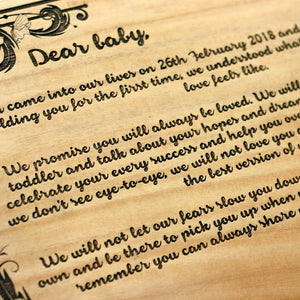 Dear baby,
came into our lives on 26th February 2018 and
lding you for the first time, we understood what
love feels like.
We promise you will always be loved. We will
toddler and talk about your hopes and dream
celebrate your every success and help you ove
we don't see eye-to-eye, we will not love you
the best version of
We will not let our fears slow you down
own and be there to pick you up when
remember you can always share